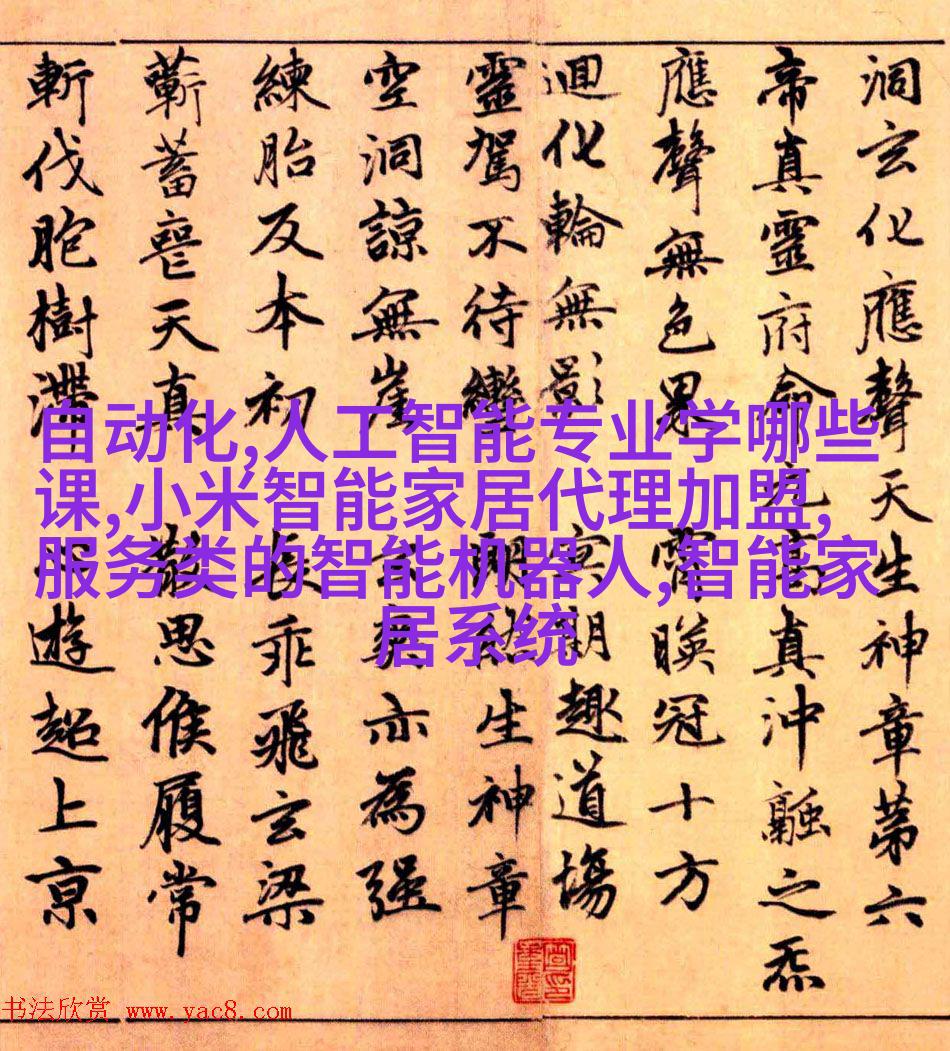 洞玄化應聲天生神章第六
帝真靈府命元高真沖融之炁
應聲無色界 霄暎冠十方
迴化輪無影 冥期趣道場
靈駕不待轡 朗然生神章
空洞諒無崖 玄爽亦為强
練胎反本初 長乖飛玄梁
蘄蓄喪天真 散思候履常
斬伐胞樹滯 心遊超上京
自动化,人工智能专业学哪些
课,小米智能家居代理加盟,
服务类的智能机器人,智能家
居系统
书法欣赏 www.yac8.com